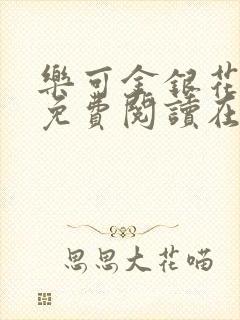 樂可金銀花
免費閱讀在
思思大花喵